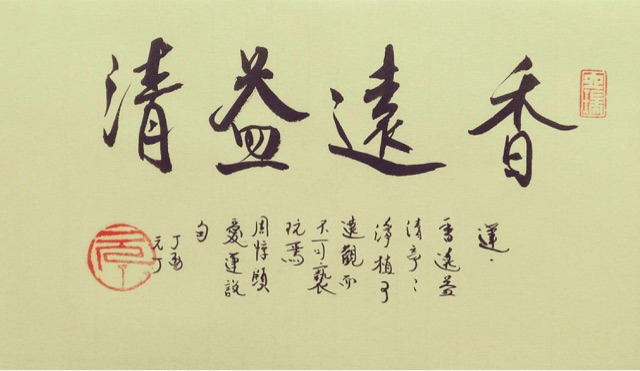 香遠益清
蓮、
香遠益
清亭〻
淨植可
遠觀而
不可褻
玩焉
周惇頤
愛蓮說
句
丁酉